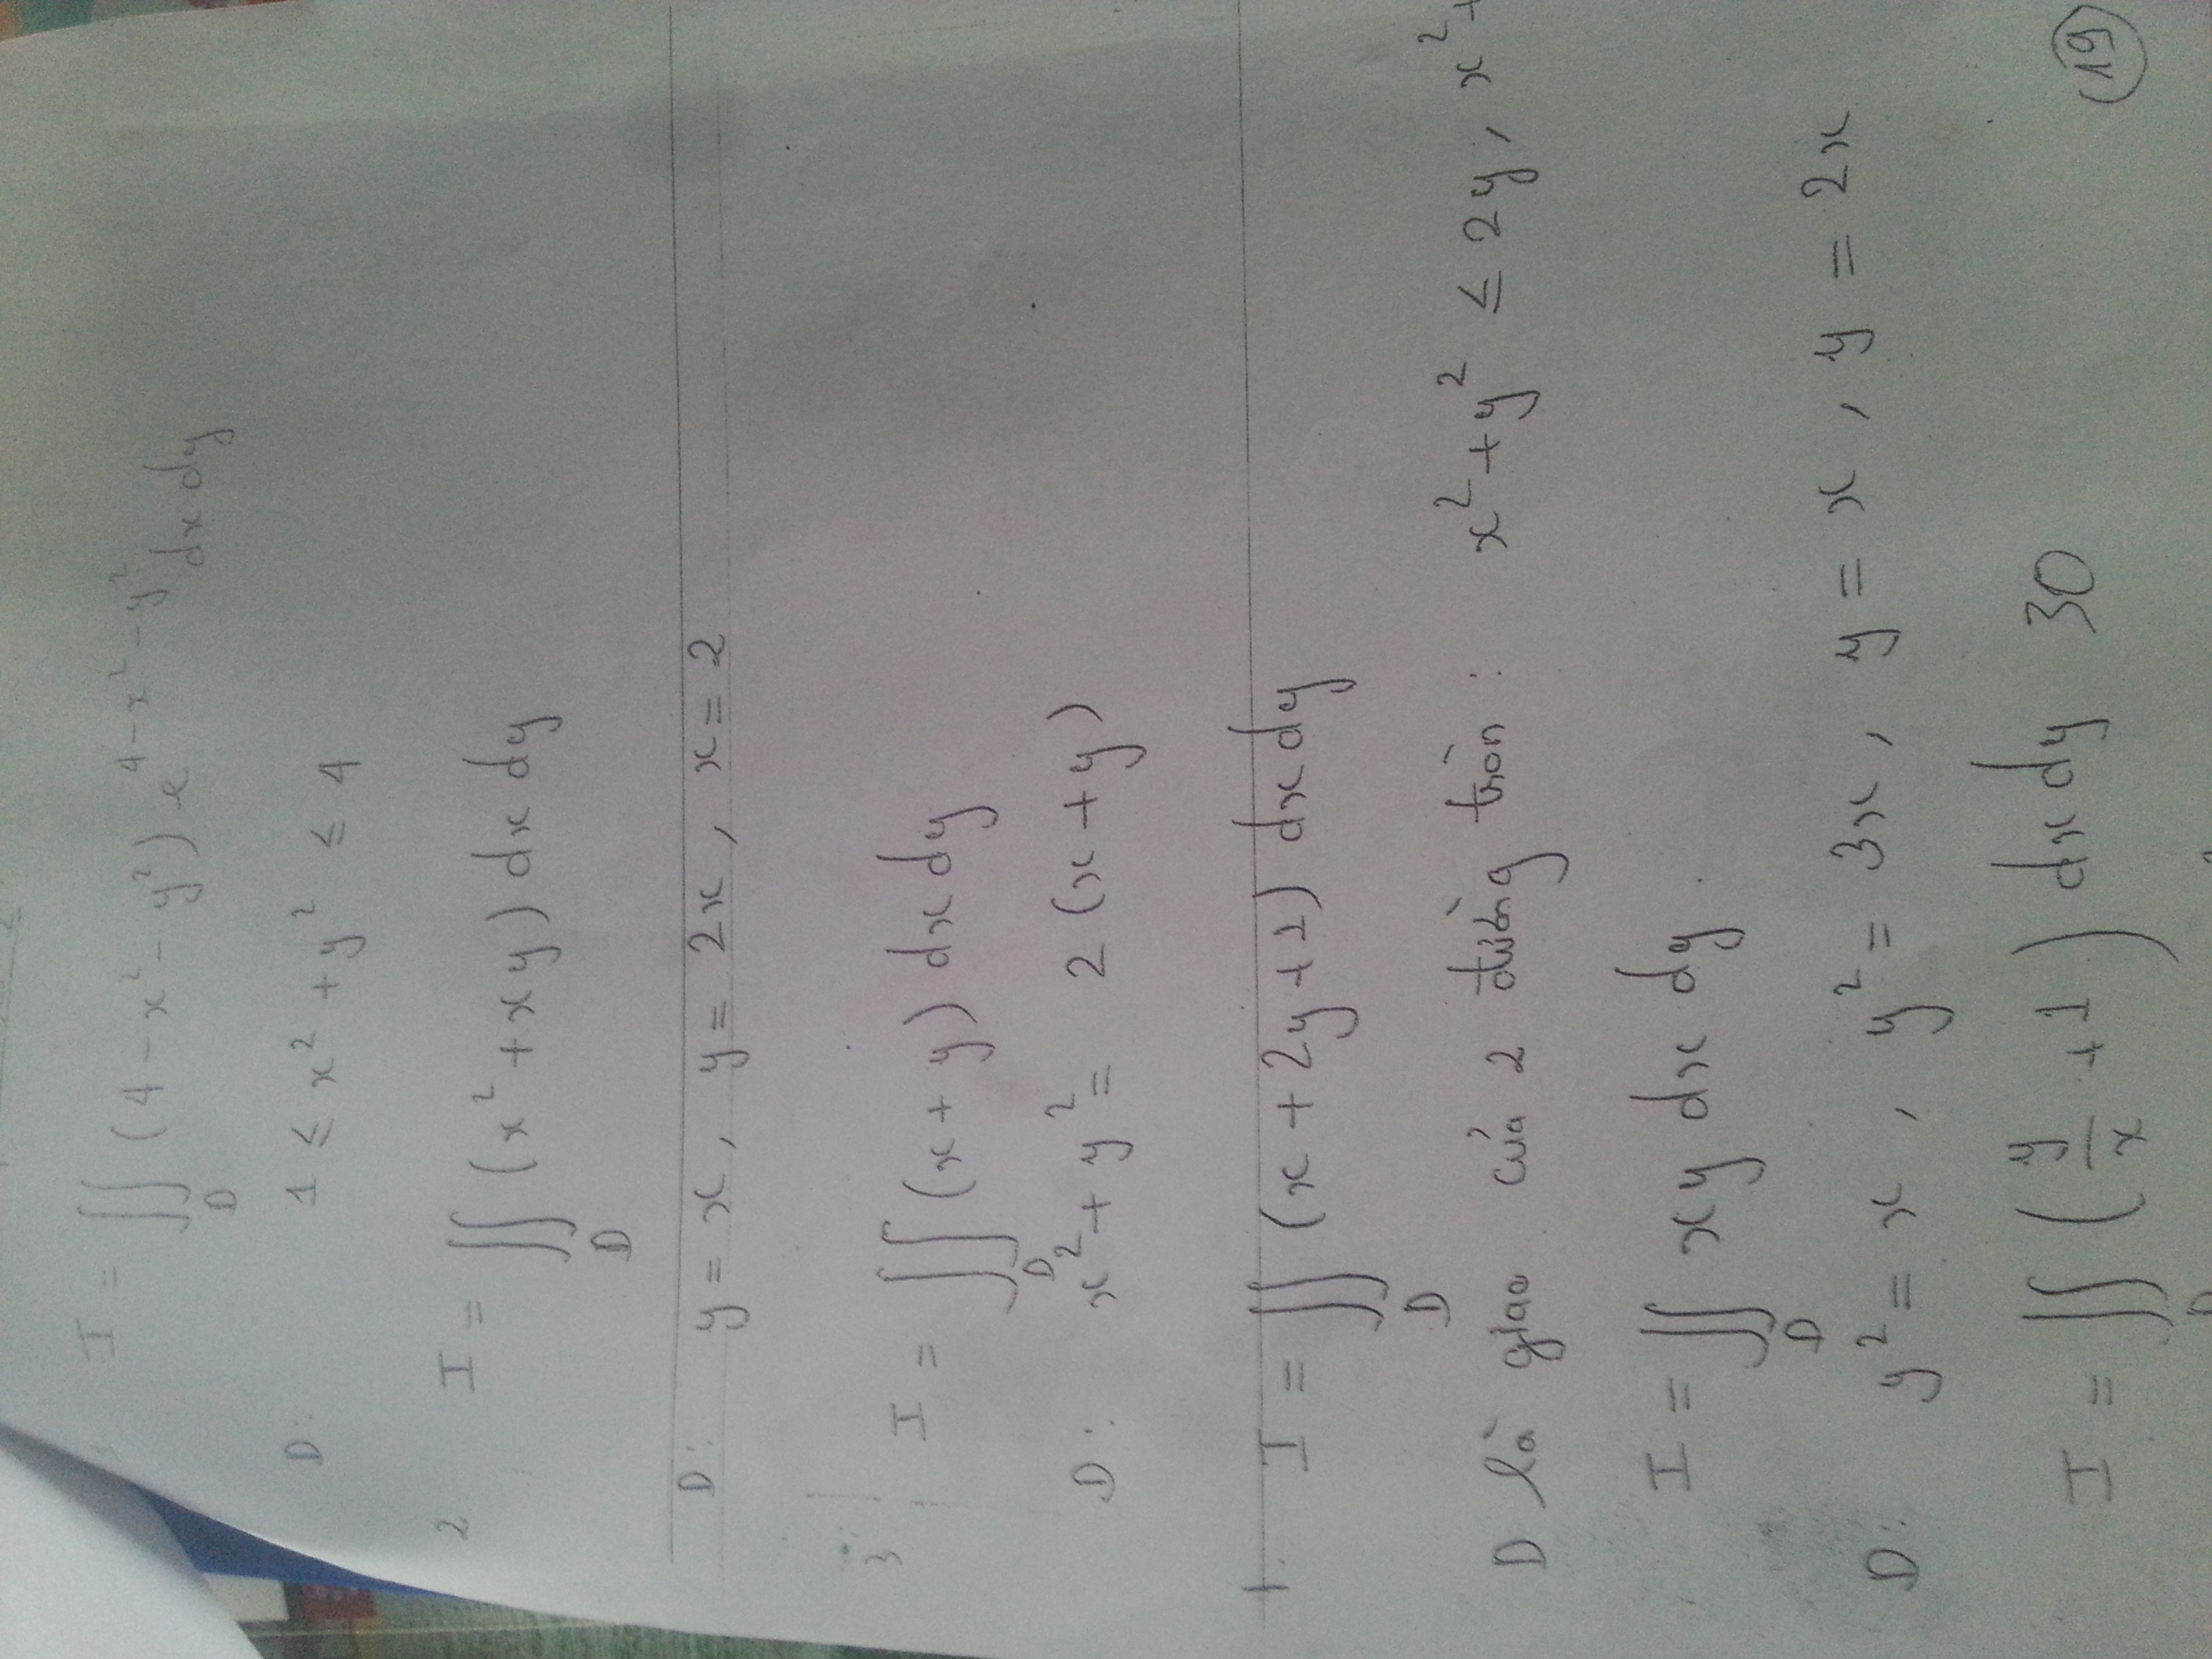 I = ∬ (4 - x² - y²) e^(4 - x² - y²) dx dy
D
D: 1 ≤ x² + y² ≤ 4
2 I = ∬ (x² + xy) dx dy
D
D: y = x, y = 2x, x = 2
3 I = ∬ (x + y) dx dy
D
D: x² + y² = 2 (x + y)
I = ∬ (x + 2y + 2) dx dy
D
D là giao của 2 đường tròn: x² + y² ≤ 2y, x² +
I = ∬ xy dx dy.
D
D: y² = x, y² = 3x, y = x, y = 2x
I = ∬ (y/x + 1) dx dy 30 19
D